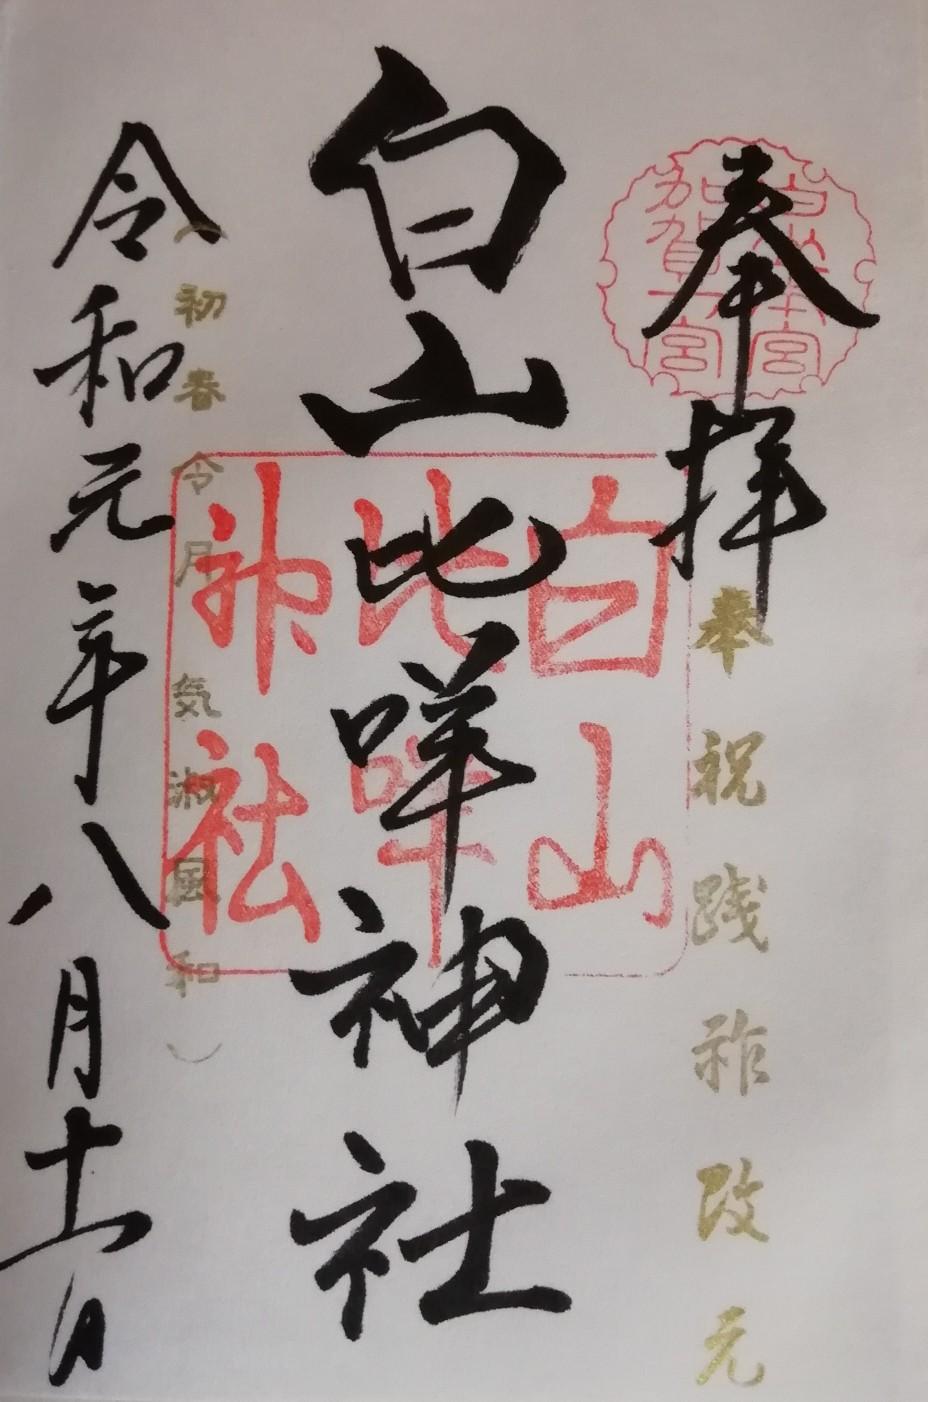 奉拝
奉祝践祚改元
白山比咩神社
白山
比咩
神社
(初春令月気淑風和)
令和元年八月十一日